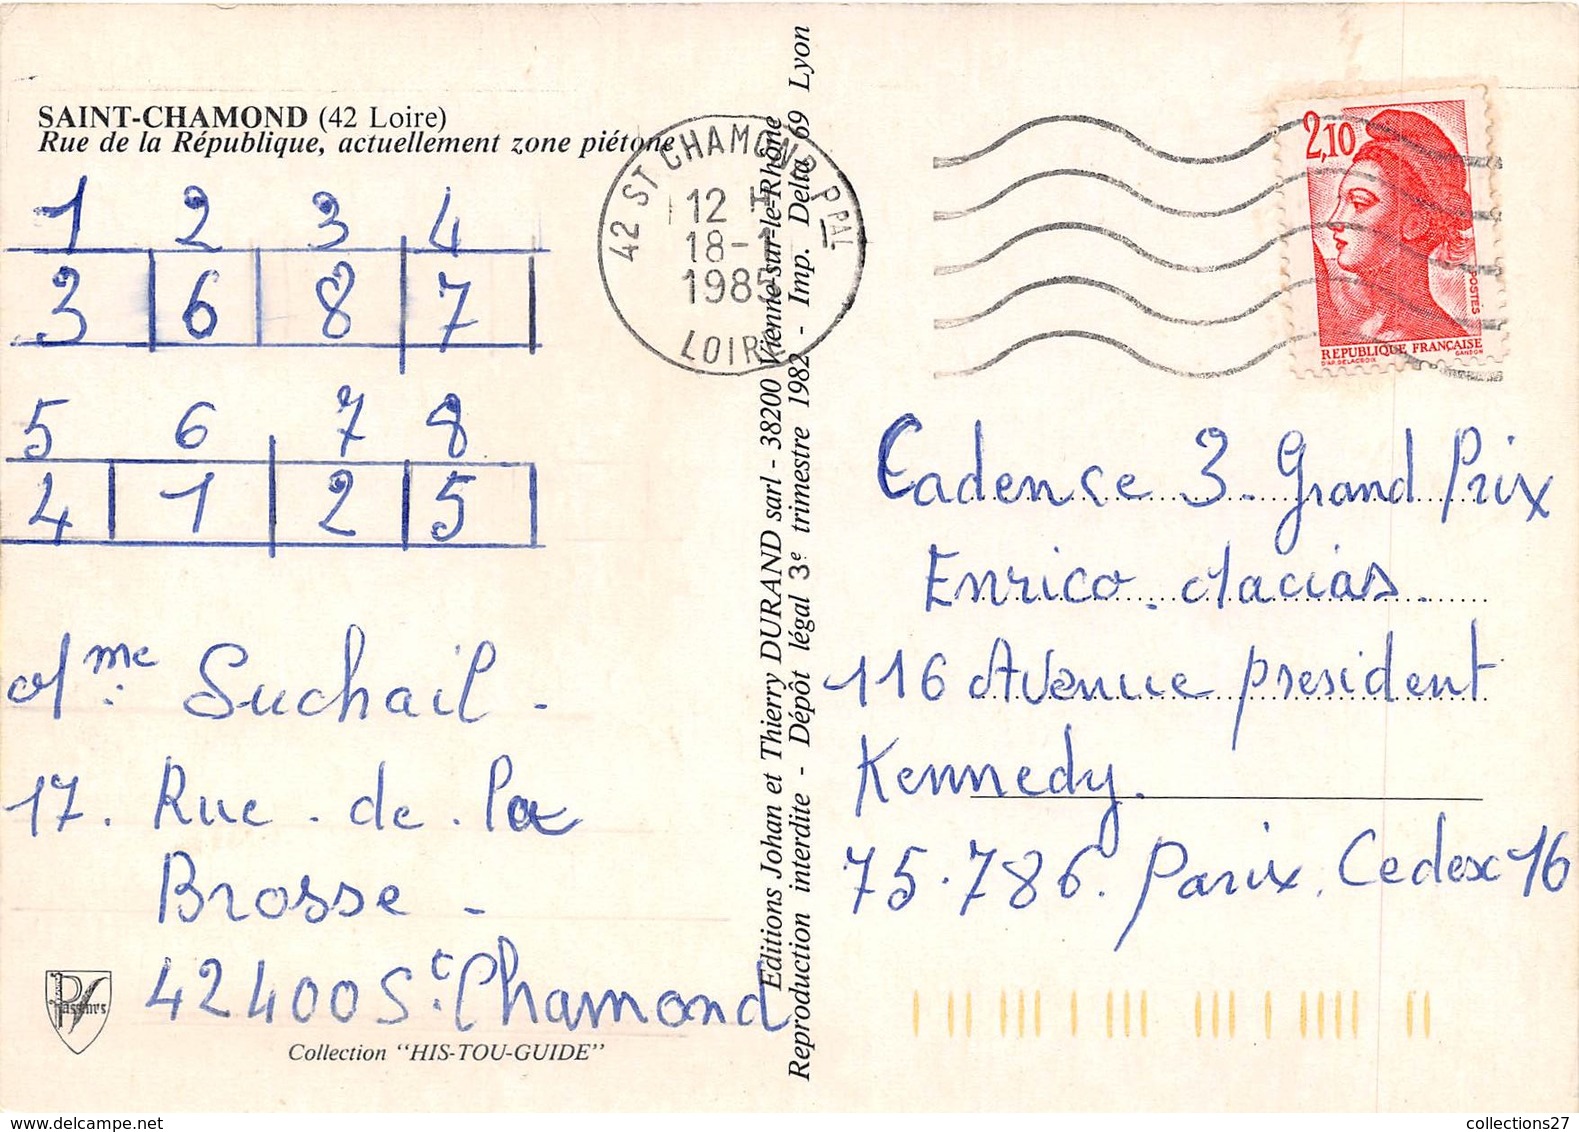 SAINT-CHAMOND (42 Loire)
Rue de la République, actuellement zone piétone
1 2 3 4
3 6 8 7
5 6 7 8
4 1 2 5
Mme Suchail -
17. Rue. de. la
Brosse -
42400 St. Chamond
Collection "HIS-TOU-GUIDE"
Editions Johan et Thierry DURAND sarl - 38200 Vienne-sur-le-Rhône
Reproduction interdite - Dépôt légal 3e trimestre 1982 - Imp. Delta 69 Lyon
42 ST CHAMOND PPAL
12 H
18-1
1985
LOIRE
2,10
POSTES
REPUBLIQUE FRANÇAISE
D'AP. DELACROIX GANDON
Cadence 3 - Grand Prix
Enrico. Macias.
116 Avenue president
Kennedy.
75.786. Parix. Cedex 16
collections27